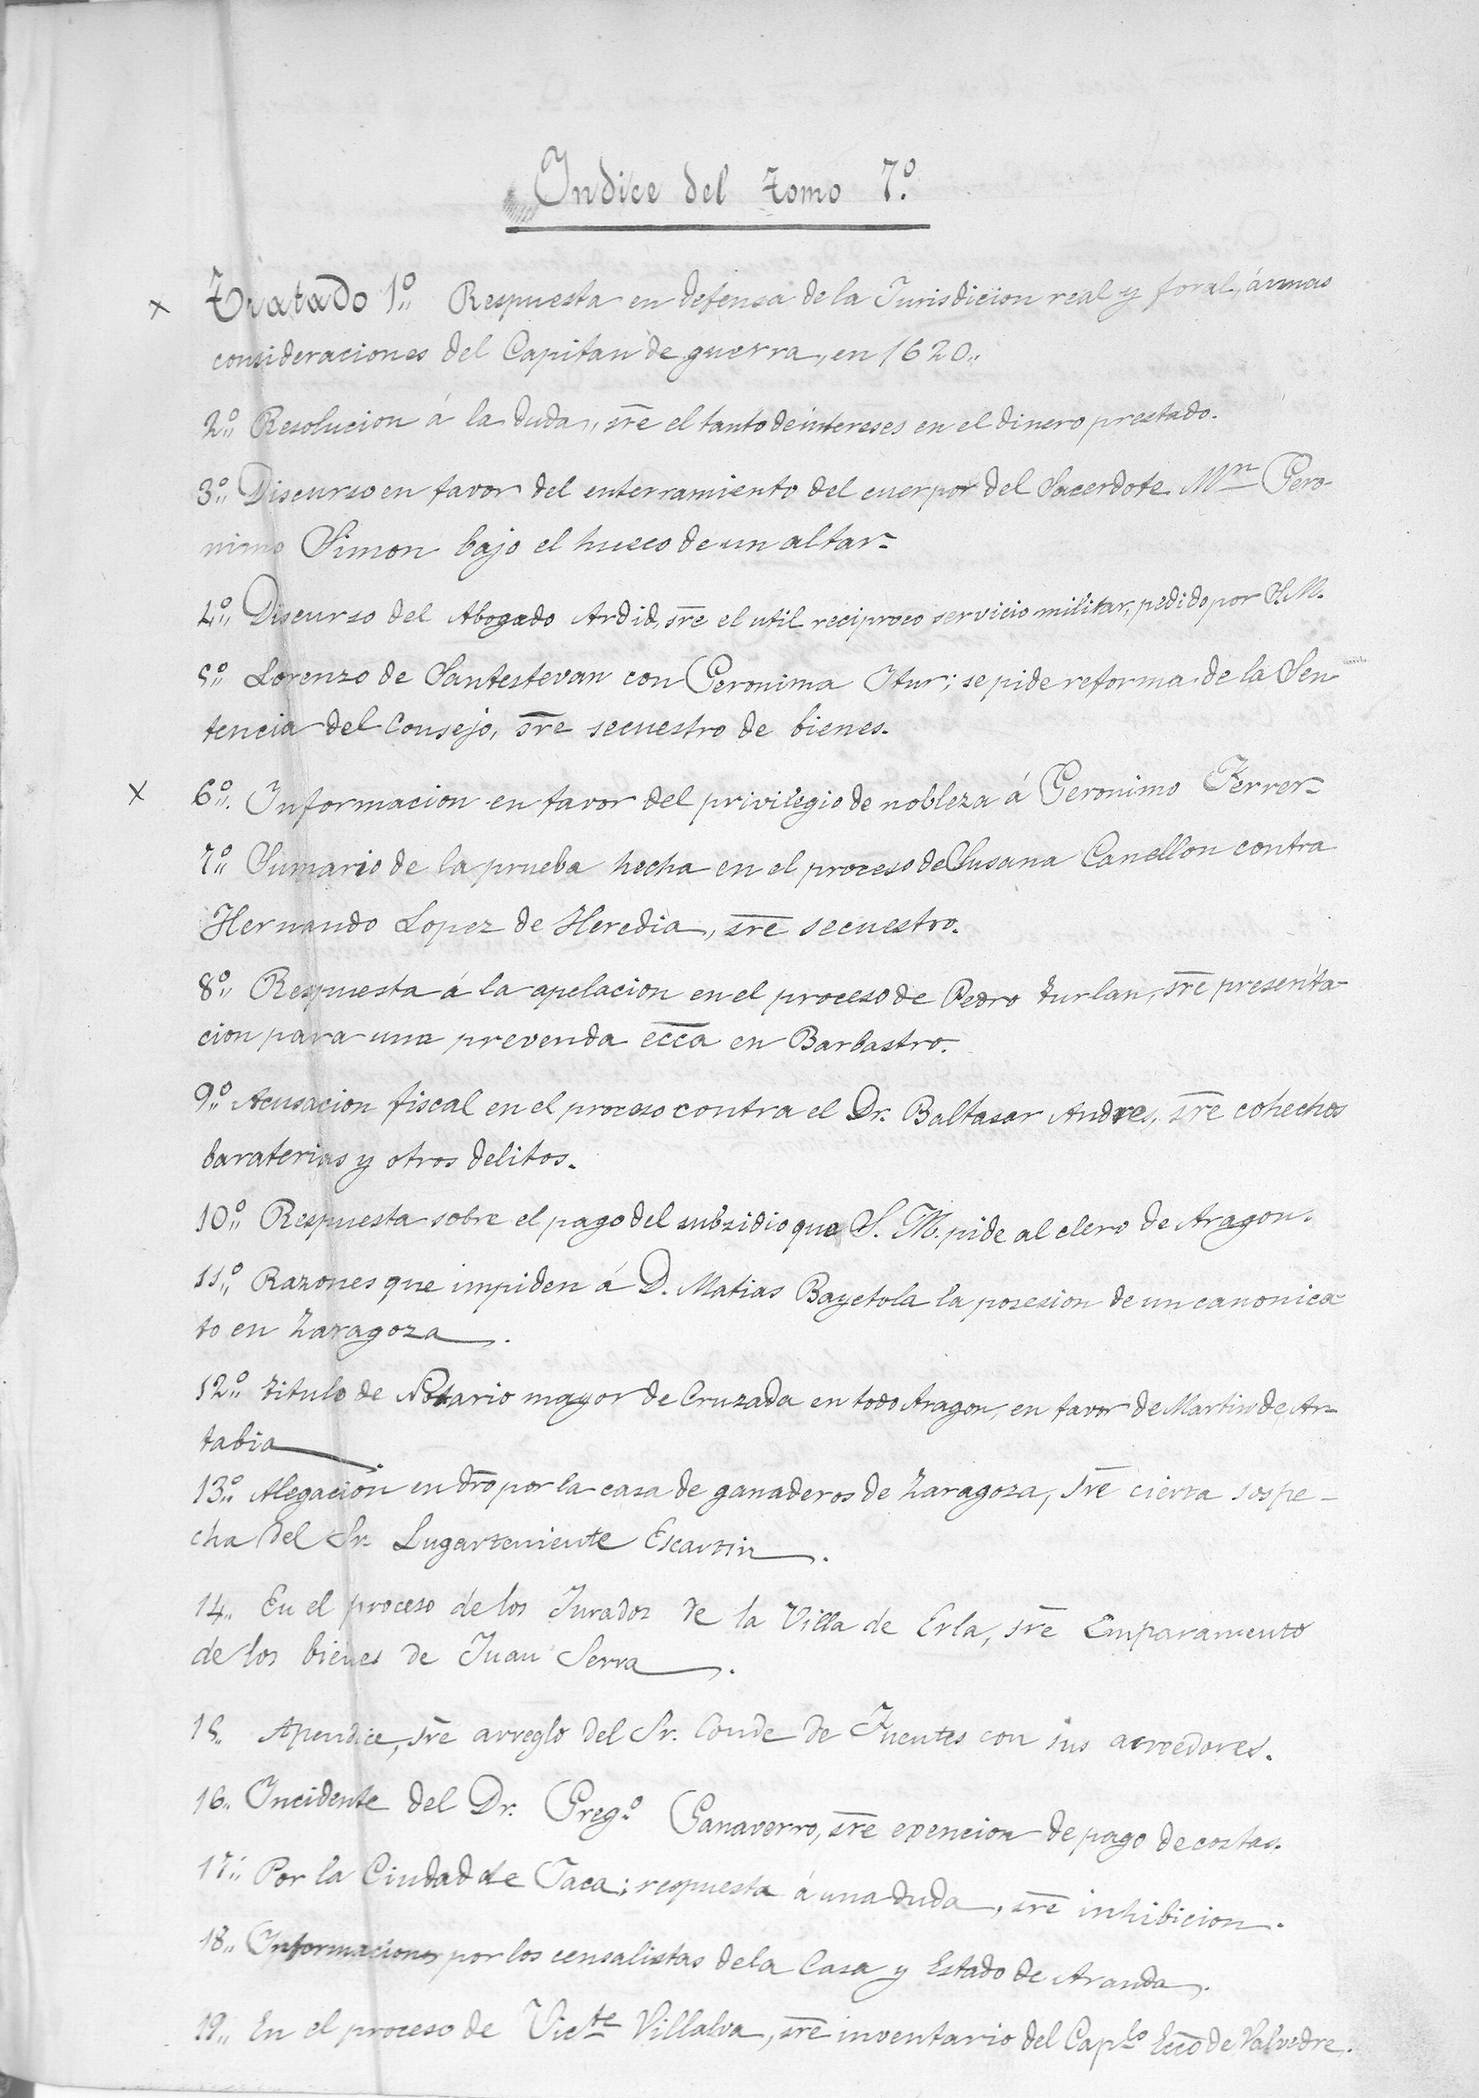 Indice del tomo 7º.
x Tratado 1º.. Respuesta en defensa de la Jurisdicion real y foral, á unas
consideraciones del Capitan de guerra, en 1620..
2º.. Resolucion á la duda, sre el tanto de intereses en el dinero prestado.
3º.. Discurso en favor del enterramiento del cuerpo del Sacerdote Mn Gero-
nimo Simon bajo el hueco de un altar-
4º.. Discurso del Abogado Ardid, sre el util reciproco servicio militar, pedido por S.M.
5º.. Lorenzo de Santestevan con Geronima Itur; se pide reforma de la Sen
tencia del Consejo, sre secuestro de bienes.
x 6º.. Informacion en favor del privilegio de nobleza á Geronimo Ferrer-
7º.. Sumario de la prueba hecha en el proceso de Susana Canellon contra
Hernando Lopez de Heredia, sre secuestro.
8º.. Respuesta á la apelacion en el proceso de Pedro Turlan, sre presenta-
cion para una prevenda ecca en Barbastro.
9º.. Acusacion fiscal en el proceso contra el Dr. Baltasar Andres, sre cohechos
baraterias y otros delitos.
10º.. Respuesta sobre el pago del subsidio que S. M. pide al clero de Aragon.
11º.. Razones que impiden á D. Matias Bayetola la posesion de un canonica
to en Zaragoza.
12º.. titulo de Notario mayor de Cruzada en todo Aragon, en favor de Martin de Ar-
tabia.
13º.. Alegacion en dro por la casa de ganaderos de Zaragoza, sre cierta sospe-
cha del Sr. Lugarteniente Escartin.
14.. En el proceso de los Jurados de la Villa de Erla, sre Emparamento
de los bienes de Juan Serra.
15.. Apendice, sre arreglo del Sr. Conde de Fuentes con sus acreedores.
16.. Incidente del Dr. Gregº Ganaverro, sre exencion de pago de costas.
17.. Por la Ciudad de Jaca; respuesta á una duda, sre inhibicion.
18.. Informaciones por los censalistas de la Casa y Estado de Aranda.
19.. En el proceso de Victe Villalva, sre inventario del Caplo Ecco de Valvedre.